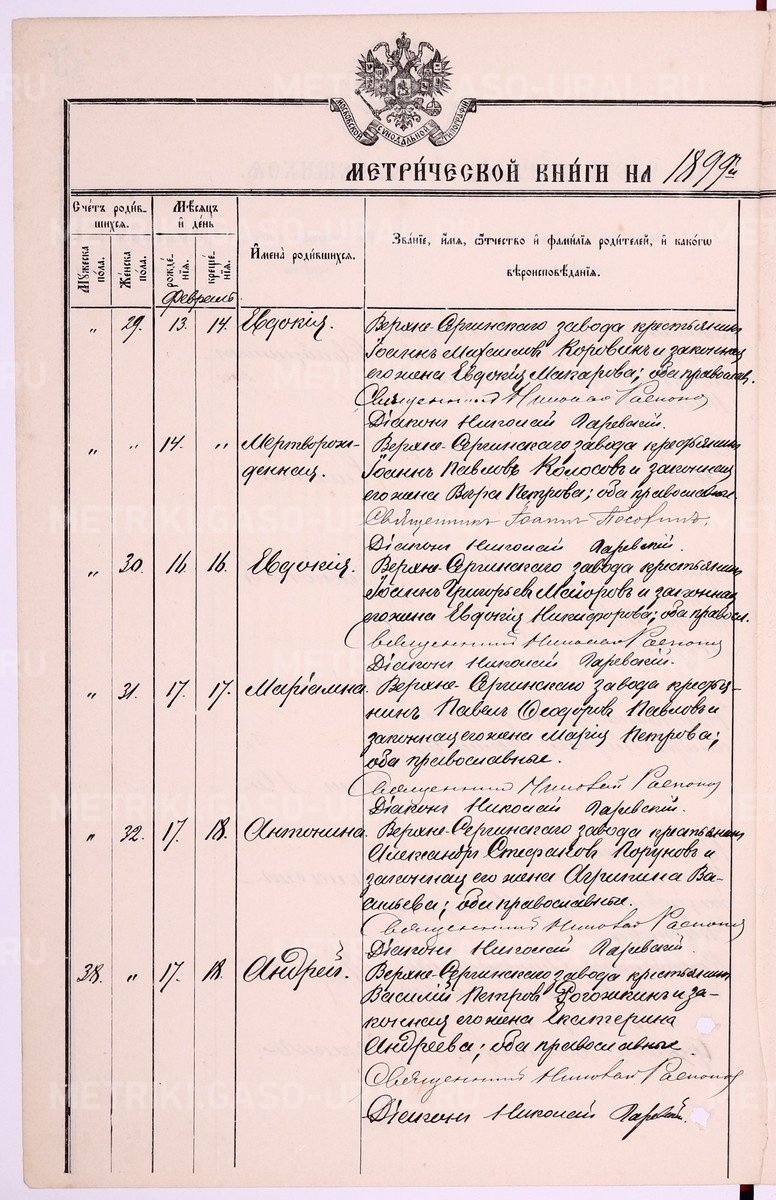 METRIKI.GASO-URAL.RU
МОСКОВСКОЙ СѴНОДАЛЬНОЙ ТИПОГРАФІИ
МЕТРИ́ЧЕСКОЙ КНИ́ГИ НА 1899й
Сче́тъ роди́в-
шихся.
Мѣ́сяцъ
и де́нь
Мꙋ́жеска
пола.
Же́нска
пола.
рожде́-
нїя.
креще́-
нїя.
Имена̀ роди́вшихся.
Зва́нїе, и́мя, ѻ҆́тчество и фами́лїя роди́телей, и како́гѡ
вѣроисповѣ́данїя.
Февраль
" 29. 13. 14. Евдокія. Верхне-Сергинскаго завода крестьянинъ
Іоаннъ Михаиловъ Коровинъ и законная
его жена Евдокія Макарова; оба православ.
Священникъ Николай
Діаконъ Николай Ларевскій.
" " 14. " Мертворож-
денная.
Верхне-Сергинскаго завода крестьянинъ
Іоаннъ Павловъ Колосовъ и законная
его жена Вѣра Петрова; оба православные.
Священникъ Іоаннъ
Діаконъ Николай Ларевскій.
" 30. 16. 16. Евдокія. Верхне-Сергинскаго завода крестьянинъ
Іоаннъ Григорьевъ Маіоровъ и законная
его жена Евдокія Никифорова; оба правосл.
Священникъ Николай
Діаконъ Николай Ларевскій.
" 31. 17. 17. Маріамна. Верхне-Сергинскаго завода крестья-
нинъ Павелъ Ѳеодоровъ Павловъ и
законная его жена Марія Петрова;
оба православные.
Священникъ Николай
Діаконъ Николай Ларевскій.
" 32. 17. 18. Антонина. Верхне-Сергинскаго завода крестьянинъ
Александръ Стефановъ Поруновъ и
законная его жена Агрипина Ва-
сильева; оба православные.
Священникъ Николай
Діаконъ Николай Ларевскій.
38. " 17. 18. Андрей. Верхне-Сергинскаго завода крестьянинъ
Василій Петровъ Рогожкинъ и за-
конная его жена Екатерина
Андреева; оба православные.
Священникъ Николай
Діаконъ Николай Ларевскій.